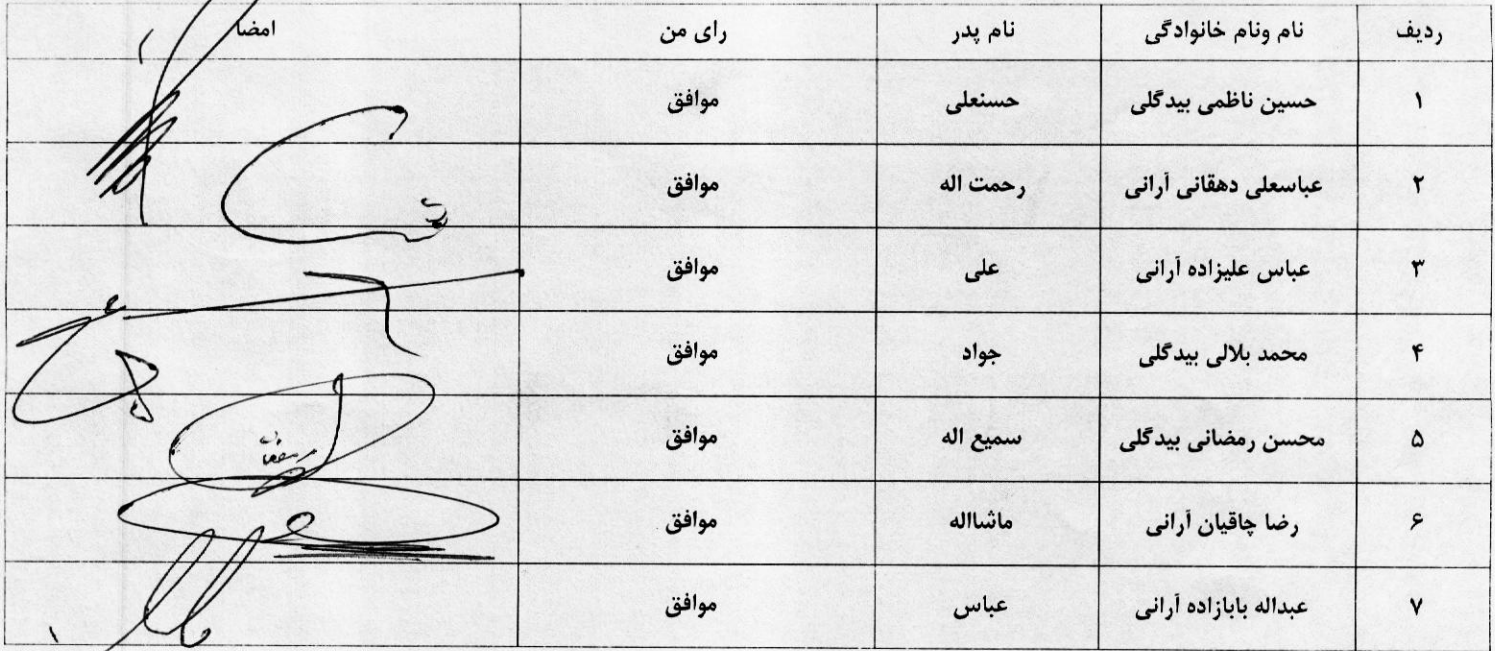 ردیف نام ونام خانوادگی نام پدر رای من امضا
۱ حسین ناظمی بیدگلی حسنعلی موافق
۲ عباسعلی دهقانی آرانی رحمت اله موافق
۳ عباس علیزاده آرانی علی موافق
۴ محمد بلالی بیدگلی جواد موافق
۵ محسن رمضانی بیدگلی سمیع اله موافق
۶ رضا چاقیان آرانی ماشااله موافق
۷ عبداله بابازاده آرانی عباس موافق